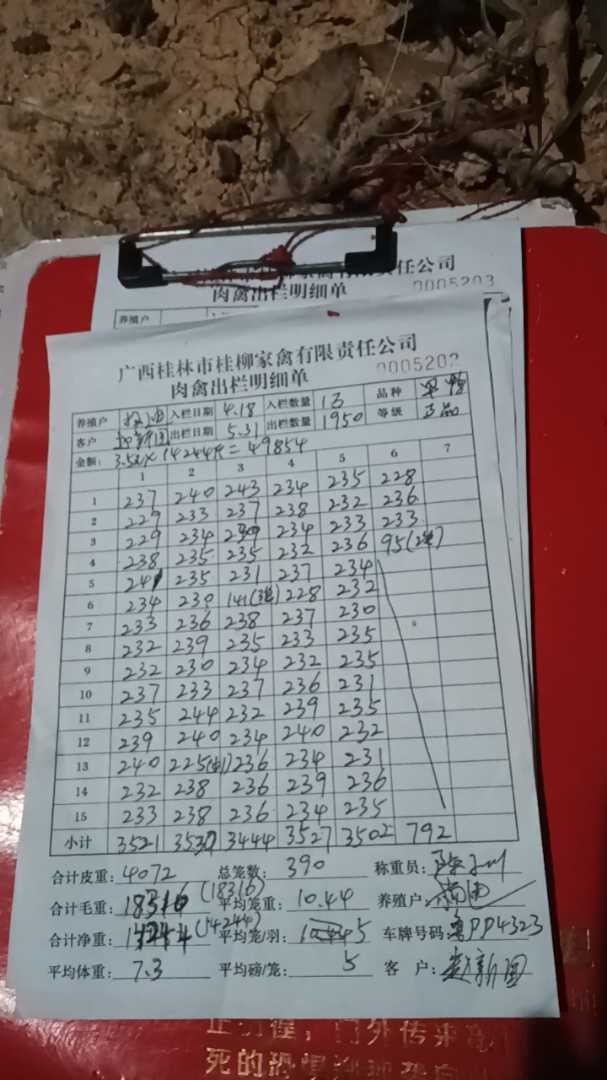 责任公司
肉禽出栏明细单 0005203
养殖户
广西桂林市桂柳家禽有限责任公司
肉禽出栏明细单 0005202
养殖户 入栏日期 4.18 入栏数量 品种
客户 赵新国 出栏日期 5.31 出栏数量 1950 等级 正品
金额: 14244斤= 49854
1 2 3 4 5 6 7
1 237 240 243 234 235 228
2 229 233 237 238 232 236
3 229 234 234 233 233
4 238 235 235 232 236 95(2笼)
5 241 235 231 237 234
6 234 230 141(3笼) 228 232
7 233 236 238 237 230
8 232 239 235 233 235
9 232 230 234 232 235
10 237 233 237 236 231
11 235 244 232 239 235
12 239 240 234 240 232
13 240 225 236 234 231
14 232 238 236 239 236
15 233 238 236 234 235
小计 3521 3530 3444 3527 3502 792
合计皮重: 4072 总笼数: 390 称重员:
合计毛重: 18316 (18316) 平均笼重: 10.44 养殖户
合计净重: (14244) 平均笼/羽: 5 车牌号码: PP4323
平均体重: 7.3 平均磅/笼: 5 客 户: 赵新国
死的恐惧